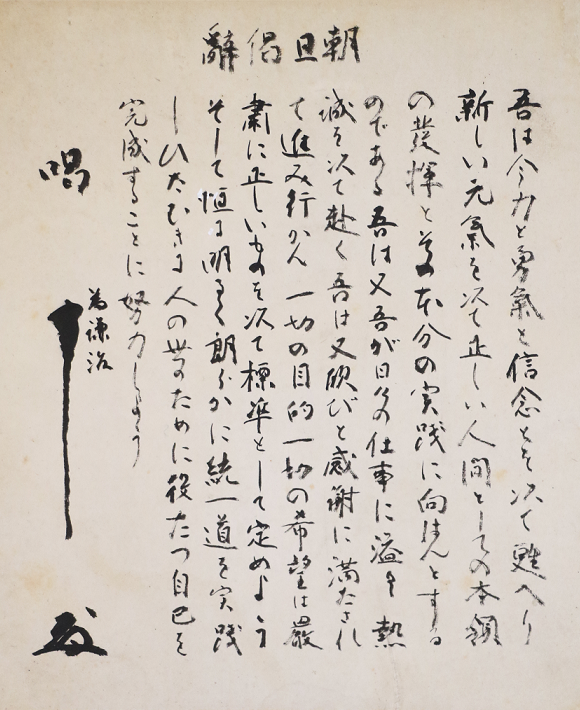 朝旦偈辭
吾は今力と勇氣と信念とを以て甦へり
新しい元氣を以て正しい人間としての本領
の發揮と其本分の実践に向はんとする
のである吾は又吾が日々の仕事に溢るゝ熱
誠を以て赴く吾は又欣びと感謝に満たされ
て進み行かん一切の目的一切の希望は嚴
肅に正しいものを以て標準として定めよう
そして恒に明るく朗らかに統一道を実践
しひたむきに人の世のために役たつ自己を
完成することに努力しよう
為謙治
唱